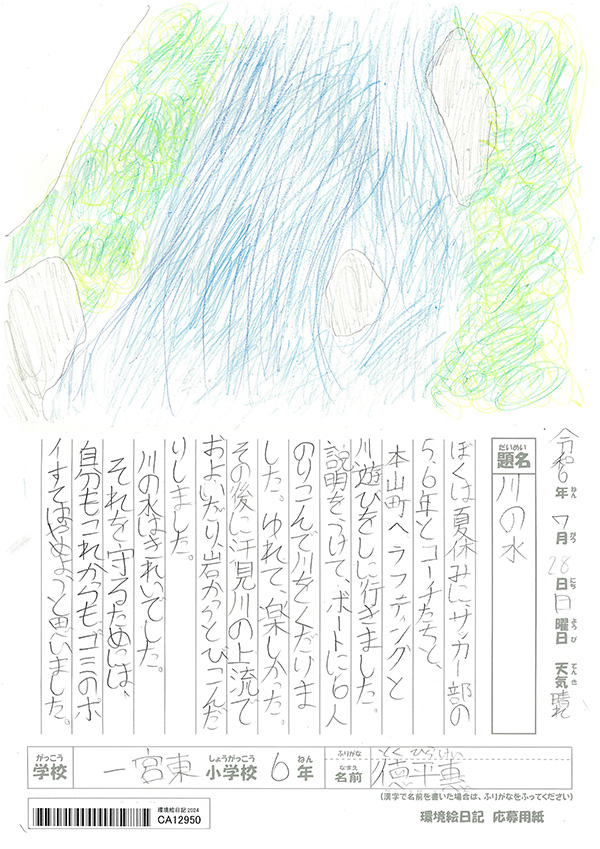 令和6年 7月 28日 日曜日 天気 晴れ
ねん がつ にち ようび てんき
だいめい
題名
川の水
ぼくは夏休みに、サッカー部の
5、6年とコーチたちと、
本山町へラフティングと
川遊びをしに行きました。
説明をうけて、ボートに6人
のりこんで川をくだりま
した。ゆれて、楽しかった。
その後に汗見川の上流で
およいだり、岩からとびこんだ
りしました。
川の水はきれいでした。
それを守るためには、
自分もこれからもゴミのポ
イすてはやめようと思いました。
がっこう しょうがっこう ねん
学校 一宮東 小学校 6年
ふりがな とくひらけい
なまえ
名前 徳平惠
(漢字で名前を書いた場合は、ふりがなをふってください)
環境絵日記 2024
CA12950
環境絵日記 応募用紙